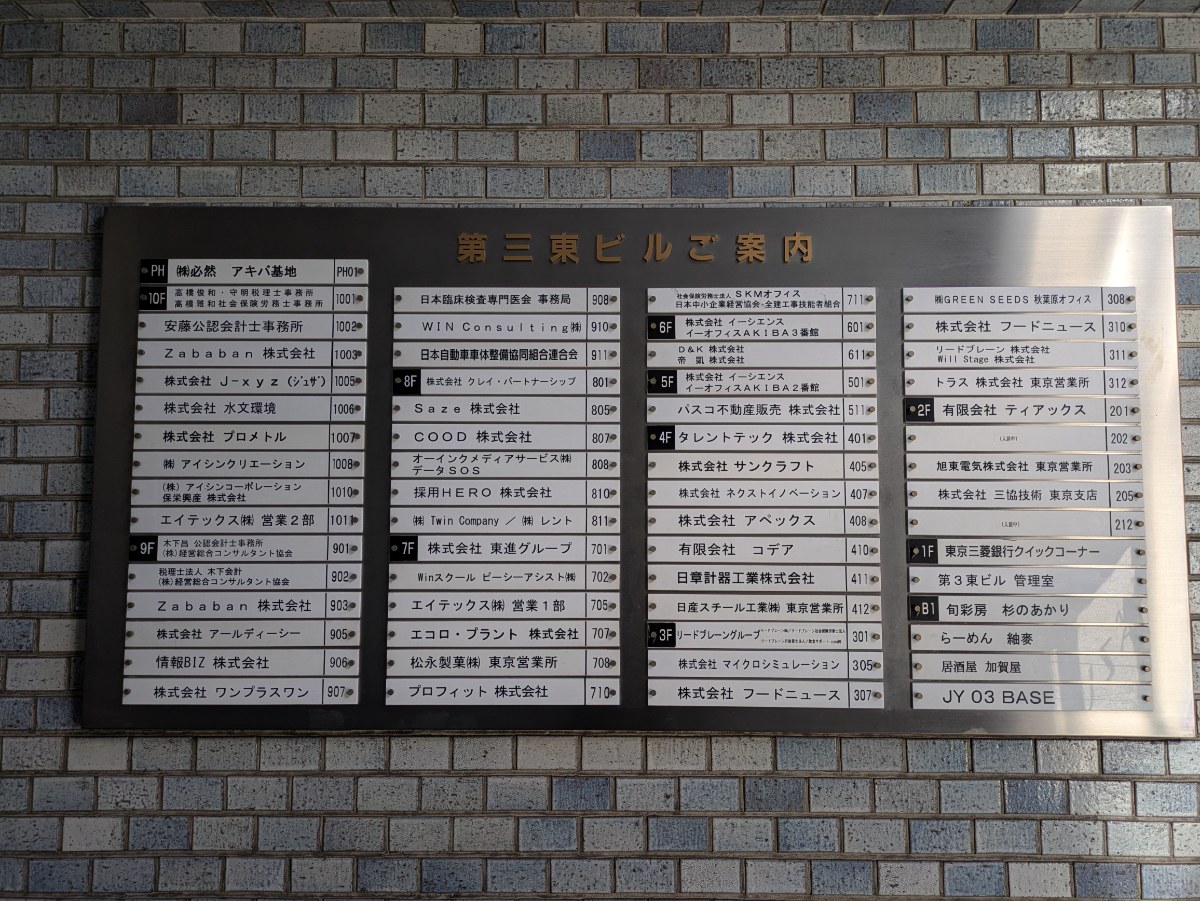 第三東ビルご案内
PH ㈱必然 アキバ基地 PH01
10F 高橋俊和・守明税理士事務所
高橋雅和社会保険労務士事務所 1001
安藤公認会計士事務所 1002
Zababan 株式会社 1003
株式会社 J-xyz（ジュザ） 1005
株式会社 水文環境 1006
株式会社 プロメトル 1007
㈱ アイシンクリエーション 1008
（株） アイシンコーポレーション
保栄興産 株式会社 1010
エイテックス㈱ 営業２部 1011
9F 木下昌 公認会計士事務所
(株)経営総合コンサルタント協会 901
税理士法人 木下会計
(株)経営総合コンサルタント協会 902
Zababan 株式会社 903
株式会社 アールディーシー 905
情報BIZ 株式会社 906
株式会社 ワンプラスワン 907
日本臨床検査専門医会 事務局 908
WIN Consulting㈱ 910
日本自動車車体整備協同組合連合会 911
8F 株式会社 クレイ・パートナーシップ 801
Saze 株式会社 805
COOD 株式会社 807
オーインクメディアサービス㈱
データSOS 808
採用HERO 株式会社 810
㈱ Twin Company ／ ㈱ レント 811
7F 株式会社 東進グループ 701
Winスクール ピーシーアシスト㈱ 702
エイテックス㈱ 営業１部 705
エコロ・プラント 株式会社 707
松永製菓㈱ 東京営業所 708
プロフィット 株式会社 710
社会保険労務士法人 SKMオフィス
日本中小企業経営協会・全建工事技能者組合 711
6F 株式会社 イーシエンス
イーオフィスAKIBA３番館 601
D&K 株式会社
帝凱 株式会社 611
5F 株式会社 イーシエンス
イーオフィスAKIBA２番館 501
パスコ不動産販売 株式会社 511
4F タレントテック 株式会社 401
株式会社 サンクラフト 405
株式会社 ネクストイノベーション 407
株式会社 アペックス 408
有限会社 コデア 410
日章計器工業株式会社 411
日産スチール工業㈱ 東京営業所 412
3F リードブレーングループ 301
株式会社 マイクロシミュレーション 305
株式会社 フードニュース 307
㈱GREEN SEEDS 秋葉原オフィス 308
株式会社 フードニュース 310
リードブレーン 株式会社
Will Stage 株式会社 311
トラス 株式会社 東京営業所 312
2F 有限会社 ティアックス 201
(入居中) 202
旭東電気株式会社 東京営業所 203
株式会社 三協技術 東京支店 205
(入居中) 212
1F 東京三菱銀行クイックコーナー
第３東ビル 管理室
B1 旬彩房 杉のあかり
らーめん 紬麦
居酒屋 加賀屋
JY 03 BASE